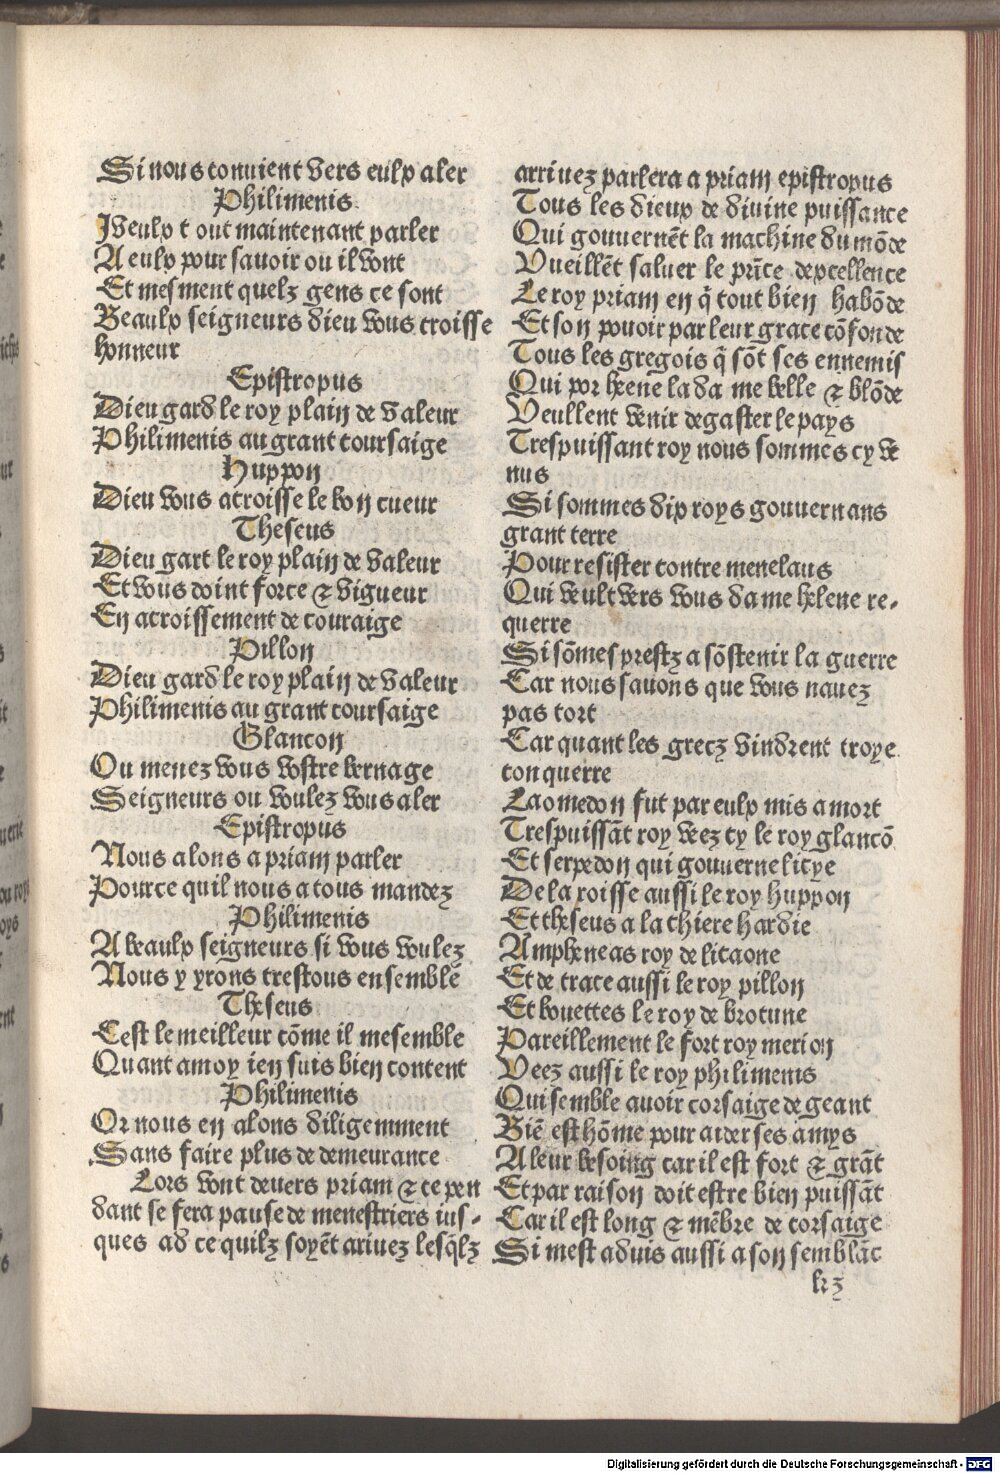 Si nous conuient vers eulx aler
Philimenis.
Je veulx t out maintenant parler
A eulx pour sauoir ou il vont
Et mesment quelz gens ce sont
Beaulx seigneurs dieu vous croisse
honneur
Epistropus
Dieu gard le roy plain de valeur
Philimenis au grant coursaige
Huppon
Dieu vous acroisse le bon cueur
Theseus
Dieu gart le roy plain de valeur
Et vous doint force & vigueur
En acroissement de couraige
Pillon
Dieu gard le roy plain de valeur
Philimenis au grant coursaige
Glancon
Ou menez vous vostre bernage
Seigneurs ou voulez vous aler
Epistropus
Nous alons a priam parler
Pource quil nous a tous mandez
Philimenis
A beaulx seigneurs si vous voulez
Nous y yrons trestous ensemble
Theseus
Cest le meilleur cōme il mesemble
Quant amoy ien suis bien content
Philimenis
Or nous en alons diligemment
Sans faire plus de demeurance
Lors vont deuers priam & ce pen
dant se fera pause de menestriers ius-
ques ad ce quilz soyēt ariuez lesq̄lz
arriuez parlera a priam epistropus
Tous les dieux de diuine puissance
Qui gouuernēt la machine du mōde
Vueillēt saluer le prīce dexcellence
Le roy priam en q̄ tout bien habōde
Et son pouoir par leur grace cōfonde
Tous les gregois q̄ sōt ses ennemis
Qui por heene la da me belle & blōde
Veullent venir degaster le pays
Trespuissant roy nous sommes cy ve
nus
Si sommes dix roys gouuernans
grant terre
Pour resister contre menelaus
Qui veult vers vous dame helene re-
querre
Si sōmes prestz a sōstenir la guerre
Car nous sauons que vous nauez
pas tort
Car quant les grecz vindrent troye
conquerre
Laomedon fut par eulx mis a mort
Trespuissāt roy veez cy le roy glancō
Et serpedon qui gouuerne licye
De la roisse aussi le roy huppon
Et theseus a la chiere hardie
Ampheneas roy de licaone
Et de trace aussi le roy pillon
Et bouettes le roy de brotune
Pareillement le fort roy merion
Veez aussi le roy philimenis
Qui semble auoir corsaige de geant
Biē est hōme pour aider ses amys
A leur besoing car il est fort & grāt
Et par raison doit estre bien puissāt
Car il est long & mēbre de corsaige
Si mest aduis aussi a son semblāc
k z
Digitalisierung gefördert durch die Deutsche Forschungsgemeinschaft - DFG